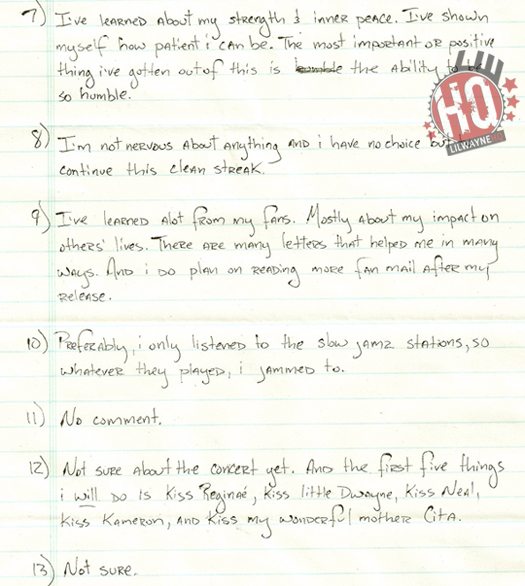 7) I've learned about my strength & inner peace. I've shown
myself how patient i can be. The most important or positive
thing i've gotten out of this is humble the ability to be
so humble.
HQ
LILWAYNE
8) I'm not nervous about anything and i have no choice but
continue this clean streak.
9) I've learned alot from my fans. Mostly about my impact on
others' lives. There are many letters that helped me in many
ways. And i do plan on reading more fan mail after my
release.
10) Preferably, i only listened to the slow jamz stations, so
whatever they played, i jammed to.
11) No comment.
12) Not sure about the concert yet. And the first five things
i will do is Kiss Reginaé, Kiss little Dwayne, Kiss Neal,
Kiss Kameron, and Kiss my wonderful mother Cita.
13) Not sure.